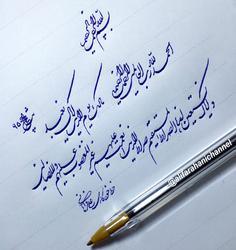 بسم الله الرحمن الرحیم
الحمد لله رب العالمین الرحمن الرحیم
مالک یوم الدین ایاک نعبد
و ایاک نستعین اهدنا الصراط المستقیم صراط الذین انعمت علیهم غیر المغضوب علیهم و لا الضالین
@alifarahanichannel